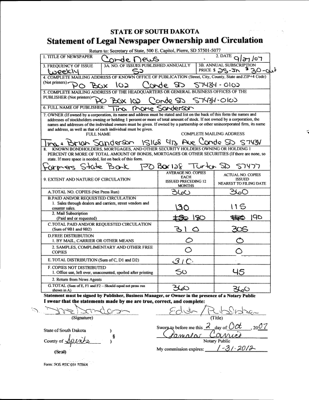 STATE OF SOUTH DAKOTA
Statement of Legal Newspaper Ownership and Circulation
Return to: Secretary of State, 500 E. Capitol, Pierre, SD 57501-5077
1. TITLE OF NEWSPAPER Conde News 2. DATE 9/27/07
3. FREQUENCY OF ISSUE Weekly 3A. NO. OF ISSUES PUBLISHED ANNUALLY 52 3B. ANNUAL SUBSCRIPTION PRICE $
4. COMPLETE MAILING ADDRESS OF KNOWN OFFICE OF PUBLICATION (Street, City, County, State and ZIP+4 Code)
(Not printers) PO Box 102 Conde SD 57434-0102
5. COMPLETE MAILING ADDRESS OF THE HEADQUARTERS OF GENERAL BUSINESS OFFICES OF THE
PUBLISHER (Not printers) PO Box 102 Conde SD 57434-0102
6. FULL NAME OF PUBLISHER: Tina Sanderson
7. OWNER (If owned by a corporation, its name and address must be stated and list on the back of this form the names and
addresses of stockholders owning or holding 1 percent or more of total amount of stock. If not owned by a corporation, the
names and addresses of the individual owners must be given. If owned by a partnership or other unincorporated firm, its name
and address, as well as that of each individual must be given.
FULL NAME COMPLETE MAILING ADDRESS
Tina & Brian Sanderson Ave Conde SD 57434
8. KNOWN BONDHOLDERS, MORTGAGEES, AND OTHER SECURITY HOLDERS OWNING OR HOLDING 1
PERCENT OR MORE OF TOTAL AMOUNT OF BONDS, MORTGAGES OR OTHER SECURITIES (If there are none, so
state. If more space is needed, list on back of this form.
Farmers State Bank PO Box 128 Turton SD 57477
9. EXTENT AND NATURE OF CIRCULATION
AVERAGE NO. COPIES EACH ISSUED PRECEDING 12 MONTHS
ACTUAL NO. COPIES ISSUED NEAREST TO FILING DATE
A. TOTAL NO. COPIES (Net Press Run) 360 360
B. PAID AND/OR REQUESTED CIRCULATION
1. Sales through dealers and carriers, street vendors and
counter sales. 130 115
2. Mail Subscriptions
(Paid and or requested) 180 190
C. TOTAL PAID AND/OR REQUESTED CIRCULATION
(Sum of 9B1 and 9B2) 310 305
D. FREE DISTRIBUTION
1. BY MAIL, CARRIER OR OTHER MEANS 0 0
2. SAMPLES, COMPLIMENTARY AND OTHER FREE
COPIES 0 0
E. TOTAL DISTRIBUTION (Sum of C, D1 and D2) 310
F. COPIES NOT DISTRIBUTED
1. Office use, left over, unaccounted, spoiled after printing 50 45
2. Return from News Agents
G. TOTAL (Sum of E, F1 and F2 - Should equal net press run
shown in A) 360 360
Statement must be signed by Publisher, Business Manager, or Owner in the presence of a Notary Public
I swear that the statements made by me are true, correct, and complete:
Tina Sanderson Editor/Publisher
(Signature) (Title)
State of South Dakota )
) §
County of )
(Seal)
Sworn to before me this 2 day of Oct, 2007
Notary Public
My commission expires: 1-31-2012